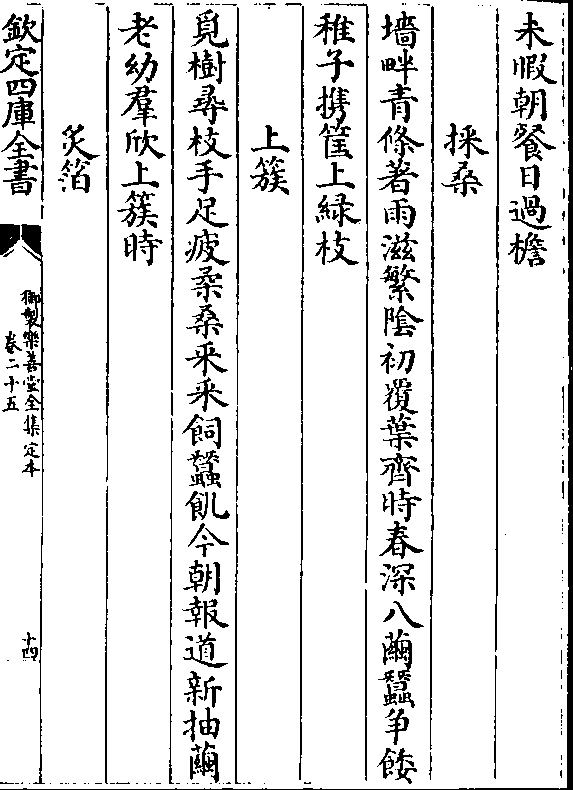 未暇朝餐日過檐
採桑
墻畔青條著雨滋繁陰初覆葉齊時春深八繭蠶争餧
稚子携筐上緑枝
上簇
覓樹尋枝手足疲柔桑采采飼蠶飢今朝報道新抽繭
老幼羣欣上簇時
炙箔
欽定四庫全書
御製樂善堂全集定本
卷二十五
十四